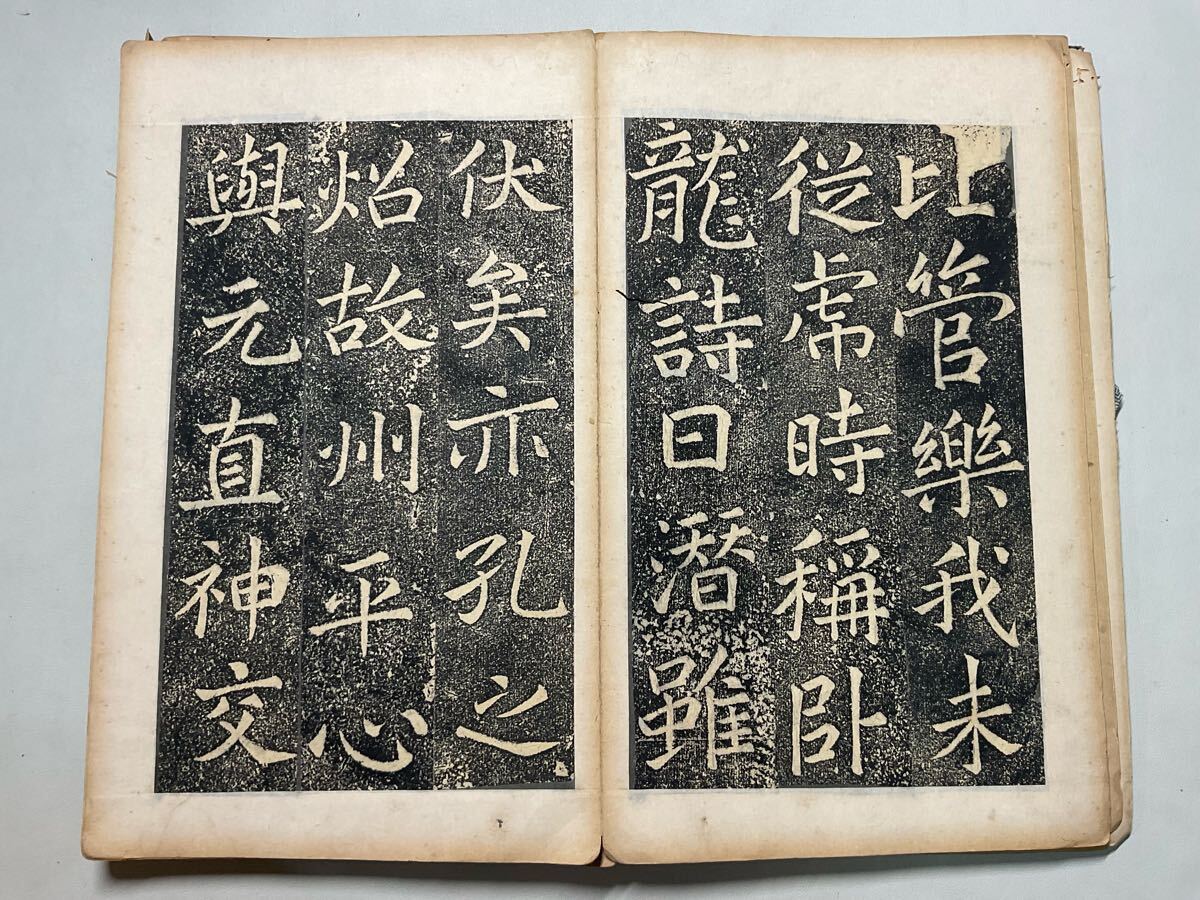 比管樂我未
從虎時稱臥
龍詩曰潛雖
伏矣亦孔之
炤故州平心
與元直神交